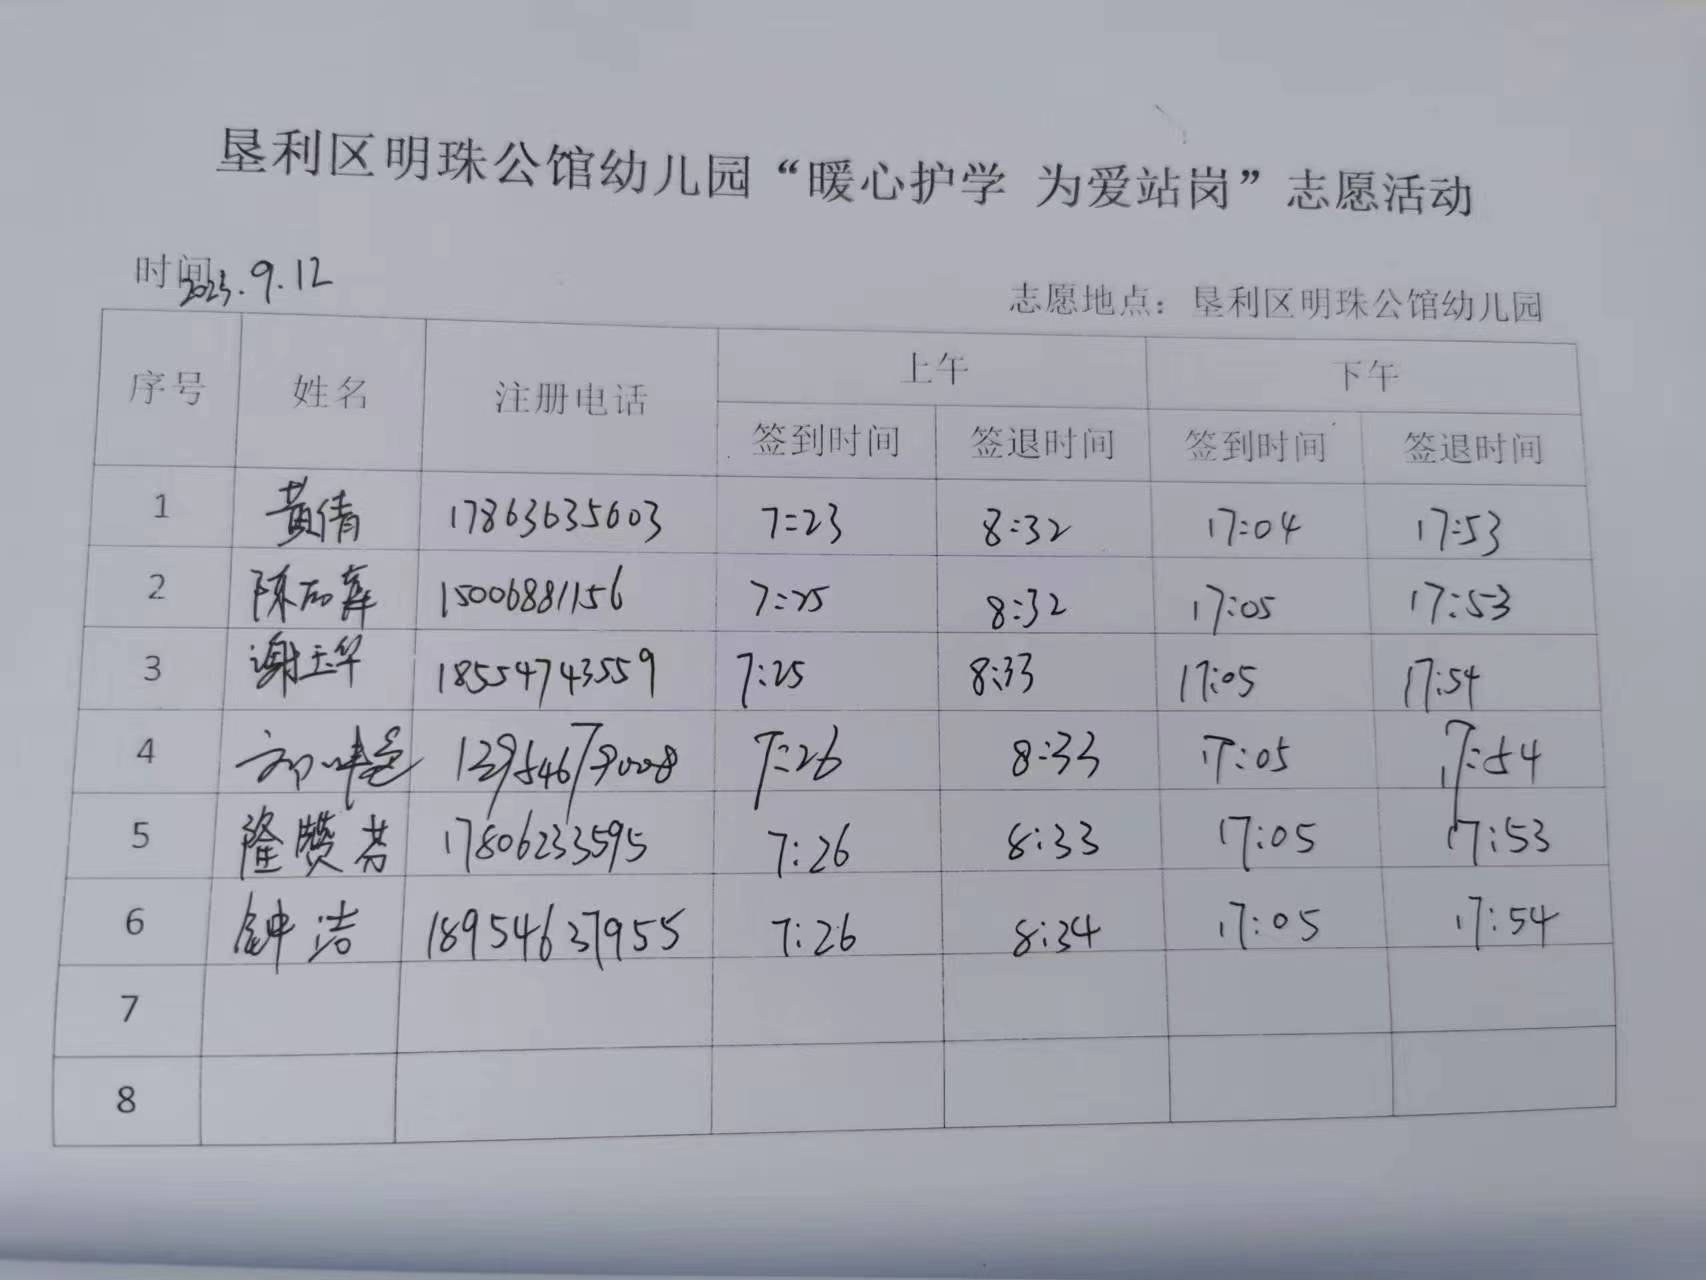 垦利区明珠公馆幼儿园“暖心护学 为爱站岗”志愿活动
时间 2023.9.12
志愿地点：垦利区明珠公馆幼儿园
序号 姓名 注册电话 上午 下午
签到时间 签退时间 签到时间 签退时间
1 黄倩 17863635603 7:23 8:32 17:04 17:53
2 陈 15006881156 7:25 8:32 17:05 17:53
3 谢玉华 18554743559 7:25 8:33 17:05 17:54
4 7:26 8:33 17:05 17:54
5 隆赞芬 17806233595 7:26 8:33 17:05 17:53
6 钟洁 18954637955 7:26 8:34 17:05 17:54
7
8